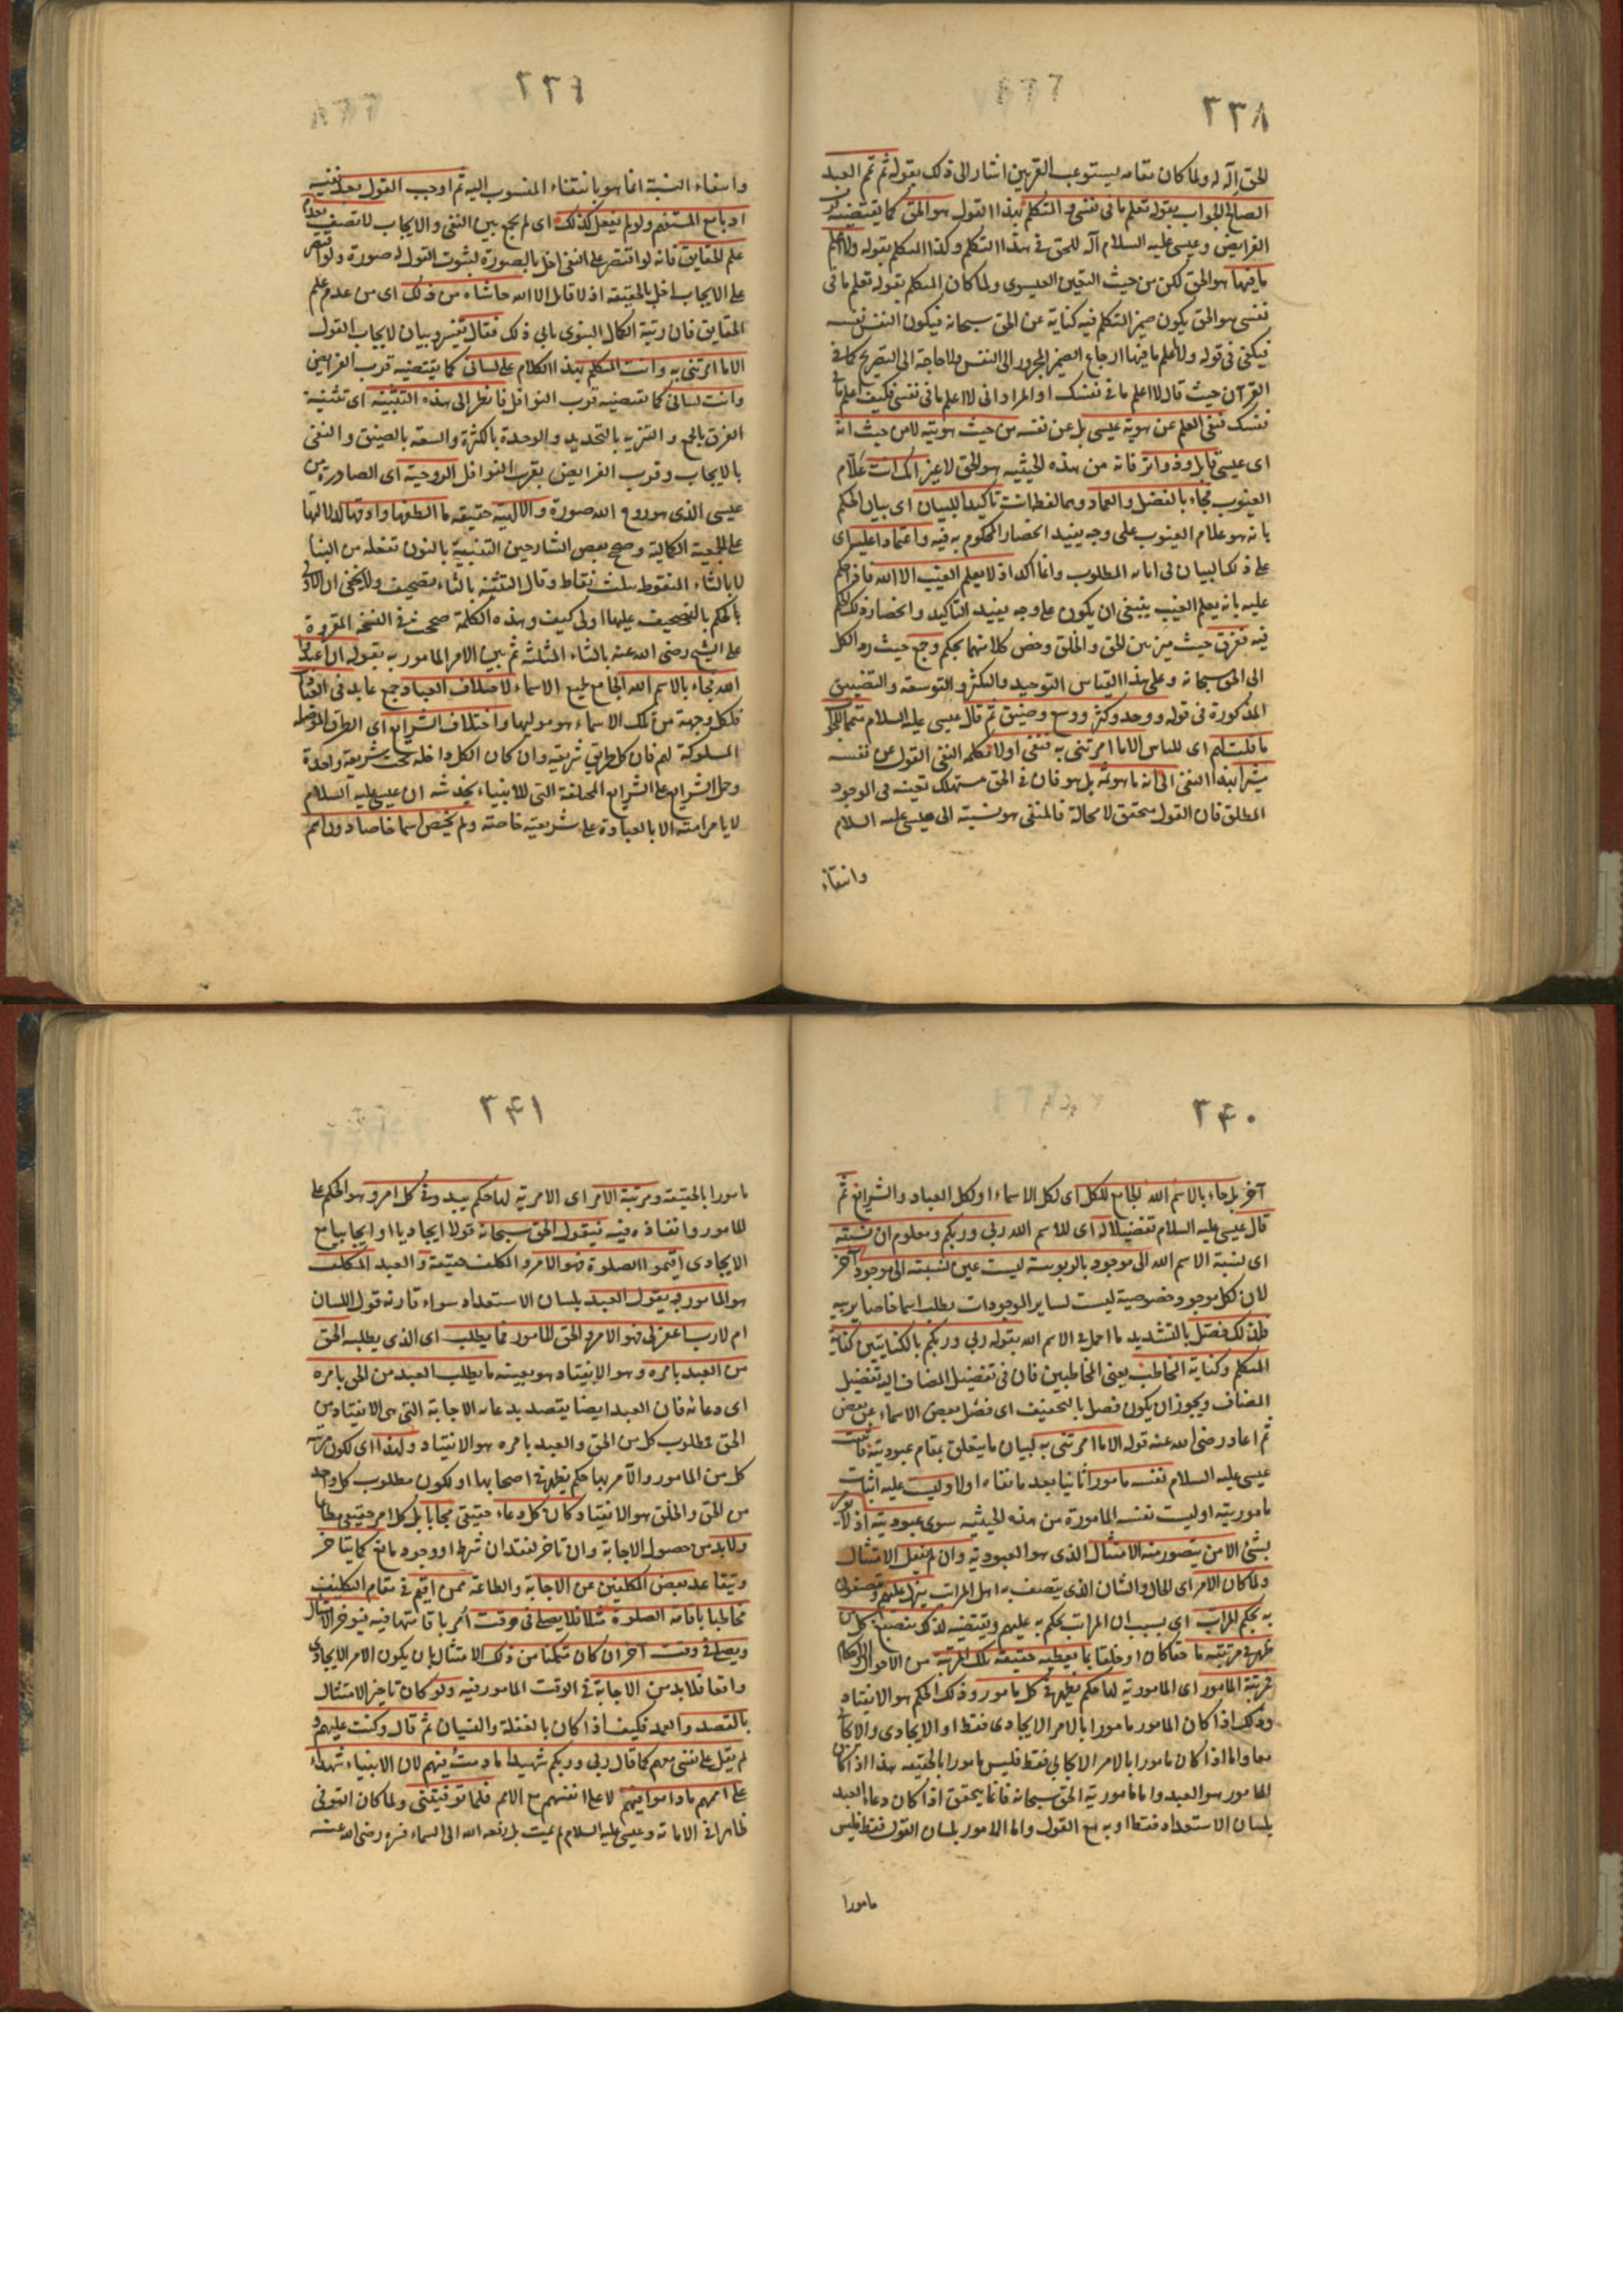 ٢٣٨
الحق آلة له ولما كان مقامه يستوعب القربين اشار الى ذلك بقوله ثم تمم العبد
الصالح الجواب بقوله تعلم ما فى نفسى والمتكلم بهذا القول هو الحق كما يقتضيه قرب
الفرايض وعيسى عليه السلام آلة للحق فى هذا التكلم وكذا المتكلم بقوله ولا اعلم
ما فيها هو الحق لكن من حيث التعين العيسوى ولما كان المتكلم بقوله تعلم ما فى
نفسى هو الحق يكون ضمير التكلم فيه كناية عن الحق سبحانه فيكون النفس نفسه
فيكفى فى قوله ولا اعلم ما فيها ارجاع الضمير المجرور الى النفس ولا حاجة الى التصريح كما فى
القرآن حيث قال لا اعلم ما فى نفسك او المراد انى لا اعلم ما فى نفسى فكيف اعلم ما فى
نفسك فنفى العلم عن هوية عيسى بل عن نفسه من حيث هويته لا من حيث انه
اى عيسى قايل وذو اثر فانه من هذه الحيثية هو الحق لا غير انك انت علام
الغيوب فجاء بالفصل والعماد وهما لفظا انت تاكيدا للبيان اى بيان الحكم
بانه هو علام الغيوب على وجه يفيد انحصار المحكوم به فيه واعتمادا عليه اى
على ذلك البيان فى افادة المطلوب وانما اكد اذ لا يعلم الغيب الا الله فافراد الحكم
عليه بانه يعلم الغيب ينبغى ان يكون على وجه يفيد التاكيد وانحصار ذلك الحكم
فيه ففرق حيث ميز بين الحق والخلق وخص كلا منهما بحكم وجمع حيث رد الكل
الى الحق سبحانه وعلى هذا القياس التوحيد والتكثر والتوسعة والتضييق
المذكورة فى قوله ووحد وكثر ووسع وضيق ثم قال عيسى عليه السلام متمما للجواب
ما قلت لهم اى للناس الا ما امرتنى به فنفى اولا بكلمة النفى القول عن نفسه
مشيرا بهذا النفى الى انه ما هو ثمه بل هو فان فى الحق مستهلك تعينه فى الوجود
المطلق فان القول متحقق لا محالة فالمنفى هو نسبته الى عيسى عليه السلام
وانتفاء
٢٣٩
وانتفاء النسبة انما هو بانتفاء المنسوب اليه ثم اوجب القول بعد نفيه
ادبا مع المستفهم ولو لم يفعل كذلك اى لم يجمع بين النفى والايجاب لاتصف بعدم
علم الحقايق فانه لو اقتصر على النفى اخل بالصورة لثبوت القول له صورة ولو اقتصر
على الايجاب اخل بالحقيقة اذ لا قائل الا الله حاشاه من ذلك اى من عدم علم
الحقايق فان رتبة الكمال النبوى يابى ذلك فقال تفسير وبيان لايجاب القول
الا ما امرتنى به وانت المتكلم بهذا الكلام على لسانى كما يقتضيه قرب الفرايض
وانت لسانى كما يقتضيه قرب النوافل فانظر الى هذه التثنية اى تثنية
الفرق بالجمع والتنزيه بالتحديد والوحدة بالكثرة والسعة بالضيق والنفى
بالايجاب وقرب الفرايض بقرب النوافل الروحية اى الصادرة من
عيسى الذى هو روح الله صورة والالهية حقيقة ما الطفها وادقها لدلالتها
على الجمعية الكمالية وصحح بعض الشارحين التنبئة بالنون تفعلة من النبأ
لا بالثاء المنقوطة بثلث نقاط وقال التثنية بالثاء تصحيف ولا يخفى ان
الحكم بالتصحيف عليها اولى كيف وهذه الكلمة صححت فى النسخة المقروة
على الشيخ رضى الله عنه بالثاء المثلثة ثم بين الامر المامور به بقوله ان اعبدوا
الله فجاء بالاسم الله الجامع لجميع الاسماء لاختلاف العباد جمع عابد فى العبادات
فلكل وجهة من تلك الاسماء هو موليها واختلاف الشرايع اى الطرق الموصلة
المسلوكة لهم فان كل طريق شريعة وان كان الكل داخلة تحت شريعة واحدة
وحمل الشرايع على الشرايع المختلفة التى للانبياء يخدشه ان عيسى عليه السلام
لا يامر امته الا بالعبادة على شريعته خاصة ولم يخص اسما خاصا دون اسم
٢٤٠
آخر بل جاء بالاسم الله الجامع للكل اى لكل الاسماء او لكل العباد والشرايع ثم
قال عيسى عليه السلام تفضيلا له اى للاسم الله ربى وربكم ومعلوم ان نسبته
اى نسبة الاسم الله الى موجود بالربوبية ليست عين نسبته الى موجود آخر
لان لكل موجود خصوصية ليست لساير الموجودات يطلب اسما خاصا يربيه
فلذلك فصل بالتشديد ما اجمل فى الاسم الله بقوله ربى وربكم بالكنايتين كناية
المتكلم وكناية المخاطب يعنى المخاطبين فان فى تفصيل المضاف اليه تفصيل
المضاف ويجوز ان يكون فصل بالتخفيف اى فصل بعض الاسماء عن بعض
ثم اعاد رضى الله عنه قوله الا ما امرتنى به لبيان ما يتعلق بمقام عبوديته فاثبت
عيسى عليه السلام نفسه مامورا ثانيا بعد ما نفاه اولا وليست عليه اثبات
ماموريته او ليست نفسه المامورة من هذه الحيثية سوى عبوديته اذ لا يؤمر
بشئ الا من يتصور منه الامتثال الذى هو العبودية وان لم يفعل الامتثال
ولما كان الامر اى الحال والشان الذى يتصف به اهل المراتب ينزل عليهم
به بحكم المراتب اى بسبب ان المراتب يحكم به عليهم ويقتضيه لذلك ينصبغ كل من
ظهر فى مرتبة ما حقا كان او خلقا بما يعطيه حقيقة تلك المرتبة من الاحوال والاحكام
فمرتبة المامور اى المامورية لها حكم يظهر فى كل مامور وذلك الحكم هو الانقياد
وذلك اذا كان المامور مامورا بالامر الايجادى فقط او الايجادى والايجابى
معا واما اذا كان مامورا بالامر الايجابى فقط فليس مامورا بالحقيقة هذا اذا كان
المامور هو العبد واما مامورية الحق سبحانه فانما يتحقق اذا كان دعاء العبد
بلسان الاستعداد فقط او به مع القول واما المامور بلسان القول فقط فليس
مامورا
٢٤١
مامورا بالحقيقة ومرتبة الامر اى الامرية لها حكم يبدو فى كل امر وهو الحكم على
المامور وانفاذه فيه فيقول الحق سبحانه قولا ايجاديا او ايجابيا مع
الايجادى اقيموا الصلوة فهو الامر والمكلف حقيقة والعبد المكلف
هو المامور به يقول العبد بلسان الاستعداد سواء قارنه قول اللسان
ام لا رب اغفر لى فهو الامر والحق المامور فما يطلب اى الذى يطلبه الحق
من العبد بامره وهو الانقياد هو بعينه ما يطلب العبد من الحق بامره
اى دعائه فان العبد ايضا يقصد بدعائه الاجابة التى هى الانقياد من
الحق فمطلوب كل من الحق والعبد بامره هو الانقياد ولهذا اى لكون مرتبة
كل من المامور والآمر لها حكم يظهر فى اصحابها او لكون مطلوب كل واحد
من الحق والخلق هو الانقياد كان كل دعاء حقيقى مجابا بل كل امر حقيقى مطاعا
ولا بد من حصول الاجابة وان تاخر لفقدان شرط او وجود مانع كما يتاخر
ويتقاعد بعض المكلفين عن الاجابة والطاعة ممن اقيم فى مقام التكليف
مخاطبا باقامة الصلوة مثلا فلا يصلى فى وقت امر باقامتها فيه فيؤخر الامتثال
ويصلى فى وقت آخر ان كان متمكنا من ذلك الامتثال بان يكون الامر الايجادى
واقعا فلا بد من الاجابة فى الوقت المامور فيه ولو كان تاخير الامتثال
بالقصد والعمد فكيف اذا كان بالغفلة والنسيان ثم قال وكنت عليهم و
لم يقل على نفسى معهم كما قال ربى وربكم شهيدا ما دمت فيهم لان الانبياء شهداء
على اممهم ما داموا فيهم لا على انفسهم مع الامم فلما توفيتنى ولما كان التوفى
ظاهرا فى الاماتة وعيسى عليه السلام لم يمت بل رفعه الله الى السماء فسره رضى الله عنه